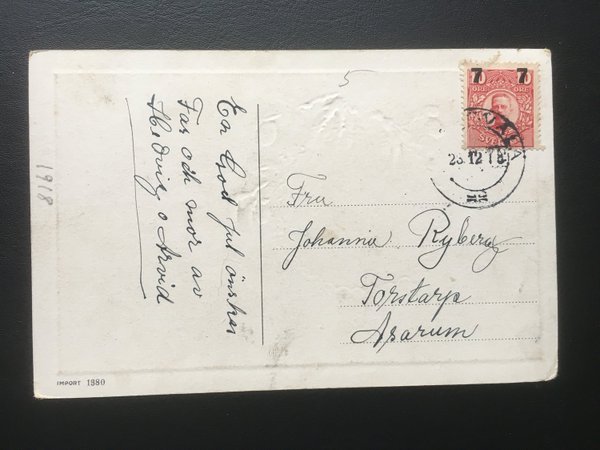 En God Jul önskar
Far och mor av
Hedvig o Arvid
1918
5
7 7
ÖRE ÖRE
SVERIGE
23.12.18
Fru
Johanna Ryberg
Torstarp
Asarum
IMPORT 1380